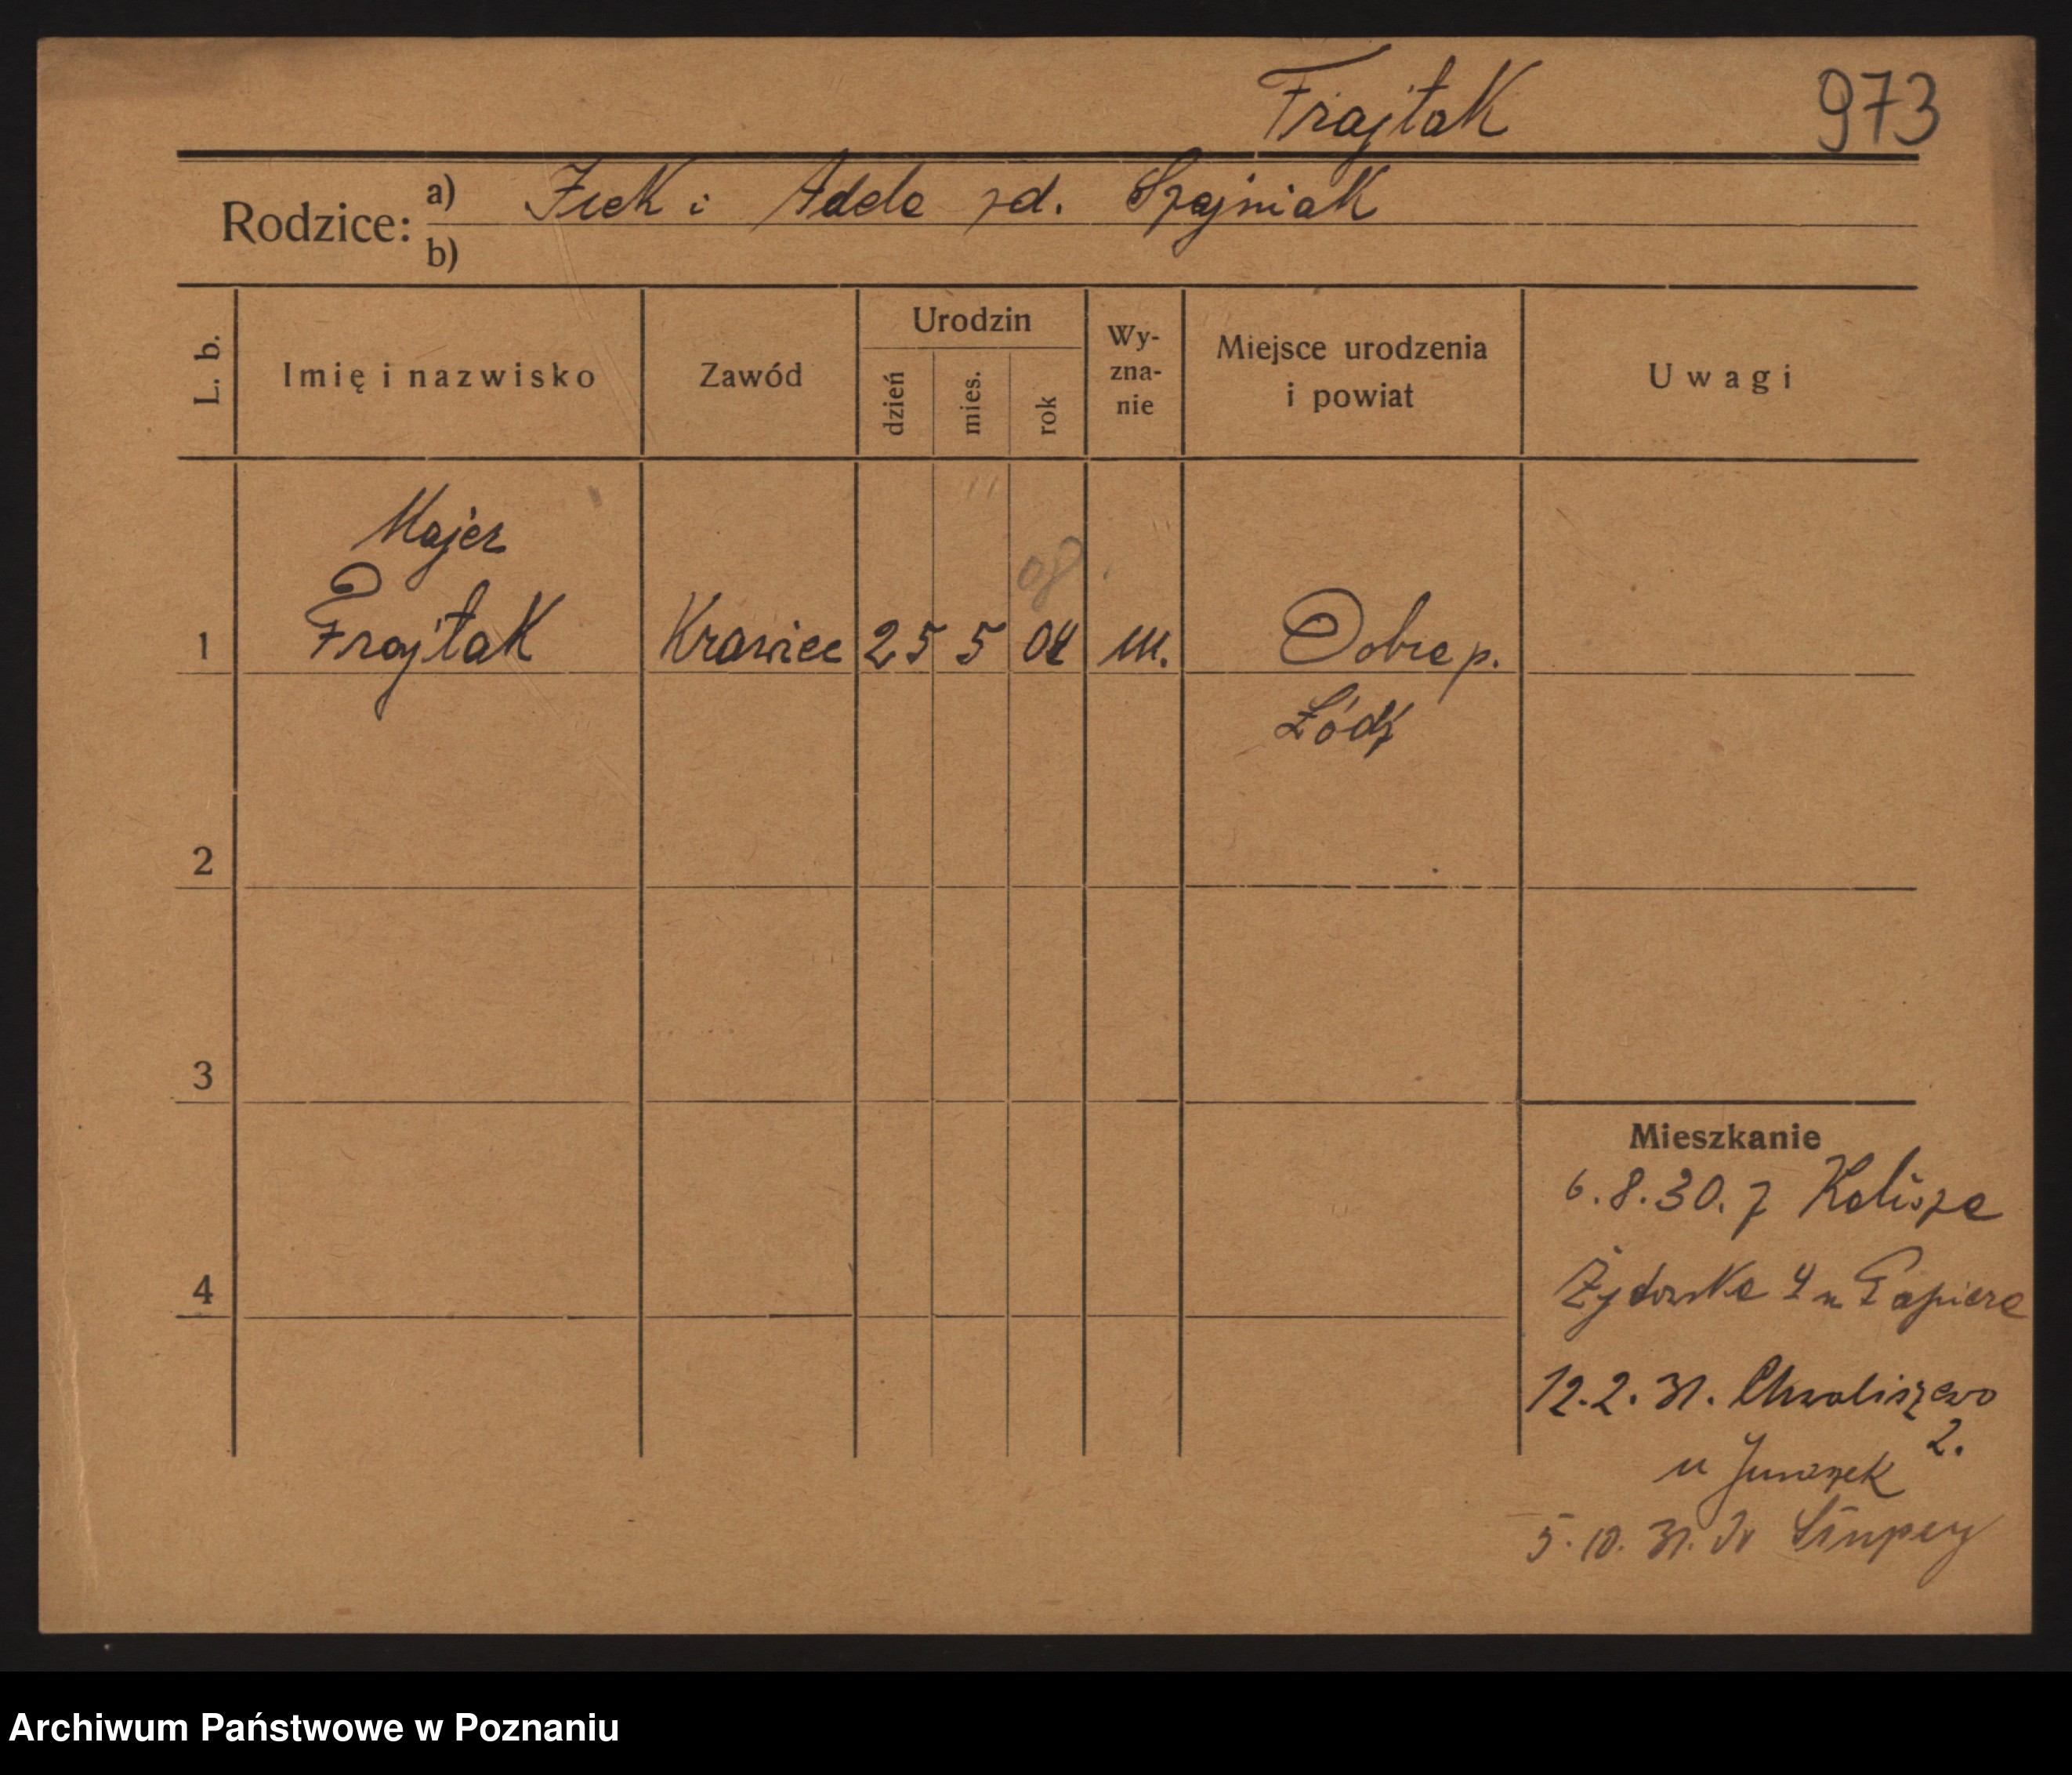 Frajtak 973
Rodzice: a) Icek i Adela zd. Szajniak
b)
L. b. Imię i nazwisko Zawód Urodzin dzień mies. rok Wy-zna-nie Miejsce urodzenia i powiat Uwagi
Majer
08
1 Frajtak Krawiec 25 5 04 m. Dobre p.
Łódź
2
3
Mieszkanie
6.8.30. z Kalisza
4 Żydowska 4 u Papiera
12.2.31. Chwaliszewo
2.
u Juszczek
5.10.31. do Słupcy
Archiwum Państwowe w Poznaniu